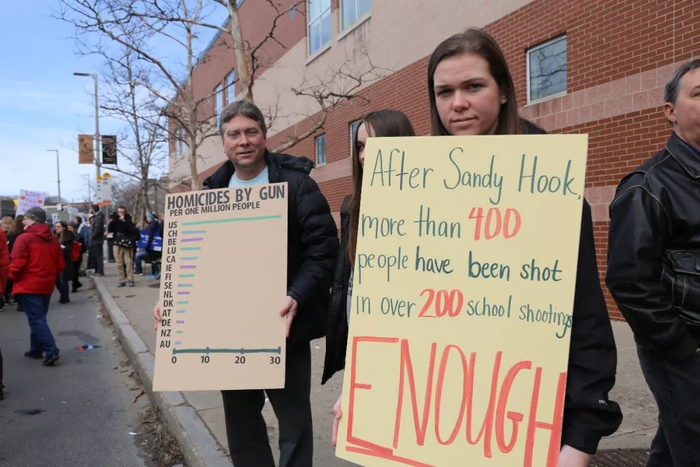 HOMICIDES BY GUN
PER ONE MILLION PEOPLE
US
CH
BE
LU
CA
IE
FI
SE
NL
DK
AT
DE
NZ
AU
0 10 20 30
After Sandy Hook,
more than 400
people have been shot
in over 200 school shootings
ENOUGH